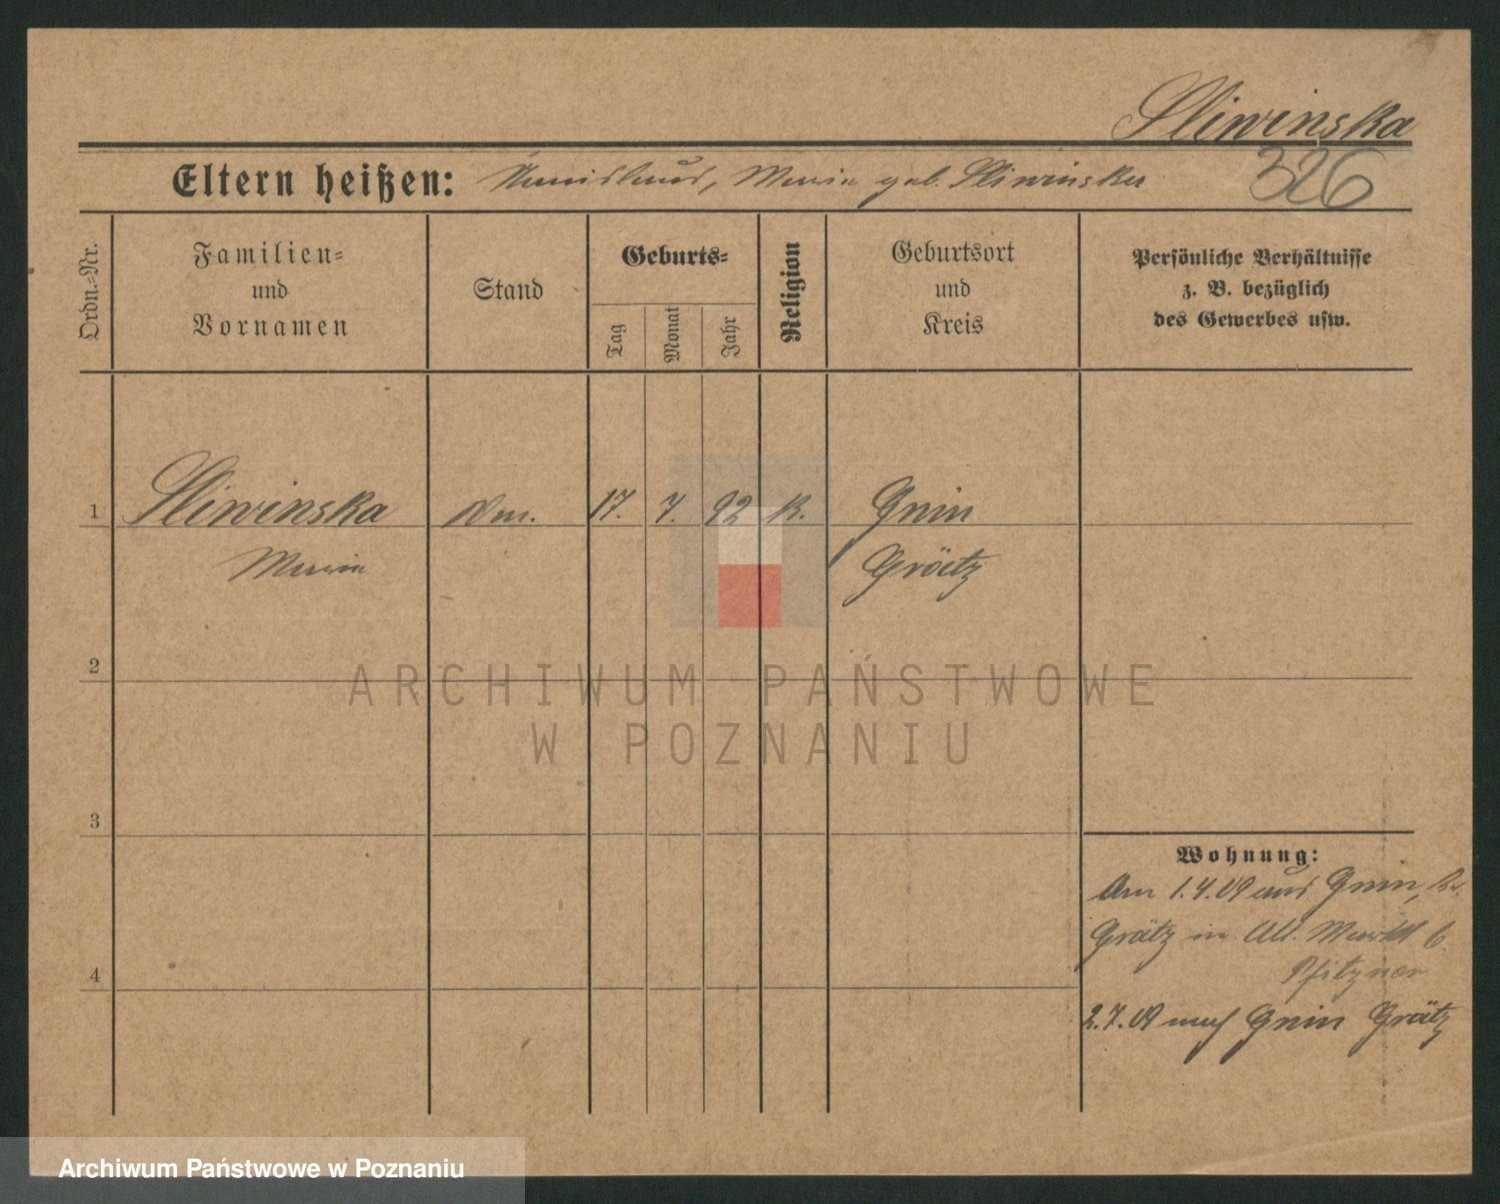 Sliwinska
Eltern heißen: Stanislaus, Maria geb. Sliwinska 326
Ordn.=Nr.
Familien=
und
Vornamen
Stand
Geburts=
Tag
Monat
Jahr
Religion
Geburtsort
und
Kreis
Persönliche Verhältnisse
z. B. bezüglich
des Gewerbes usw.
1 Sliwinska 17. 7. 92 k. Gnin
Maria Grätz
2
ARCHIWUM PAŃSTWOWE
W POZNANIU
3
Wohnung:
Am 1.4.09 aus Gnin, Kr.
Grätz in Alt. Markt 6
Pfitzner
4
2.7.09 nach Gnin Grätz
Archiwum Państwowe w Poznaniu